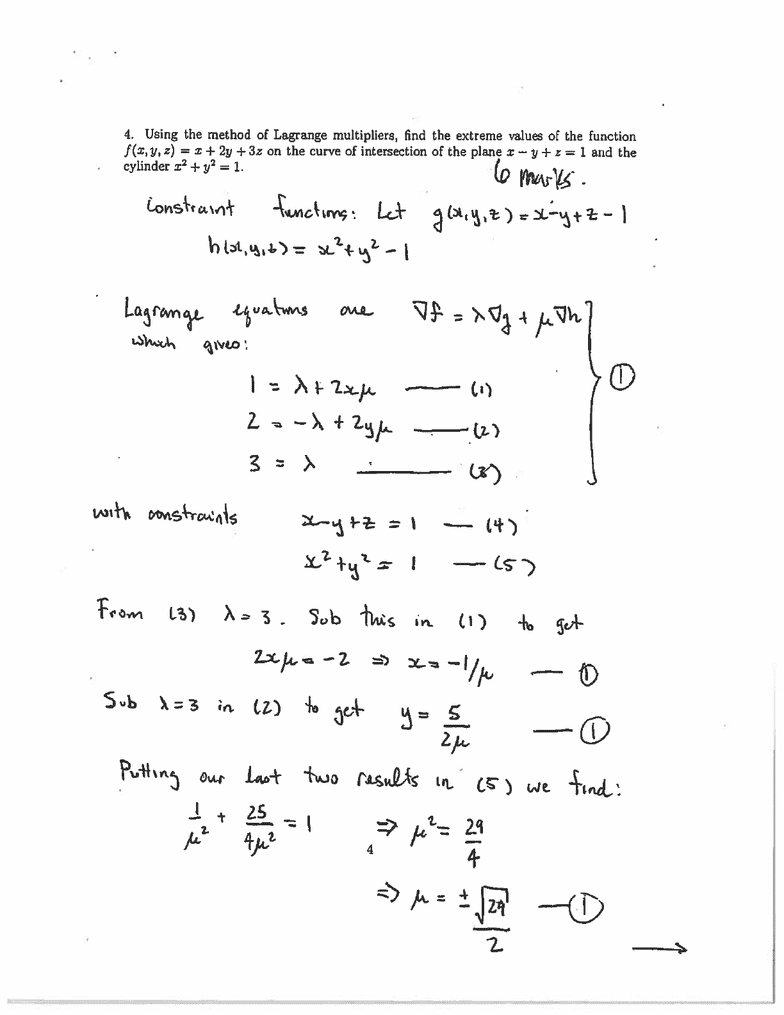 4. Using the method of Lagrange multipliers, find the extreme values of the function
f(x, y, z) = x + 2y + 3z on the curve of intersection of the plane x − y + z = 1 and the
cylinder x² + y² = 1.
6 marks.
Constraint functions: Let g(x,y,z) = x-y+z-1
h(x,y,z) = x²+y²-1
Lagrange equations are ∇f = λ∇g + μ∇h
which gives:
①
1 = λ+2xμ —— (1)
2 = -λ+2yμ —— (2)
3 = λ —— (3)
with constraints x-y+z = 1 — (4)
x²+y² = 1 — (5)
From (3) λ=3. Sub this in (1) to get
2xμ=-2 ⇒ x=-1/μ — ①
Sub λ=3 in (2) to get y = 5/2μ — ①
Putting our last two results in (5) we find:
1/μ² + 25/4μ² = 1 ⇒ μ² = 29/4
4
⇒ μ = ±√29/2 — ①
→